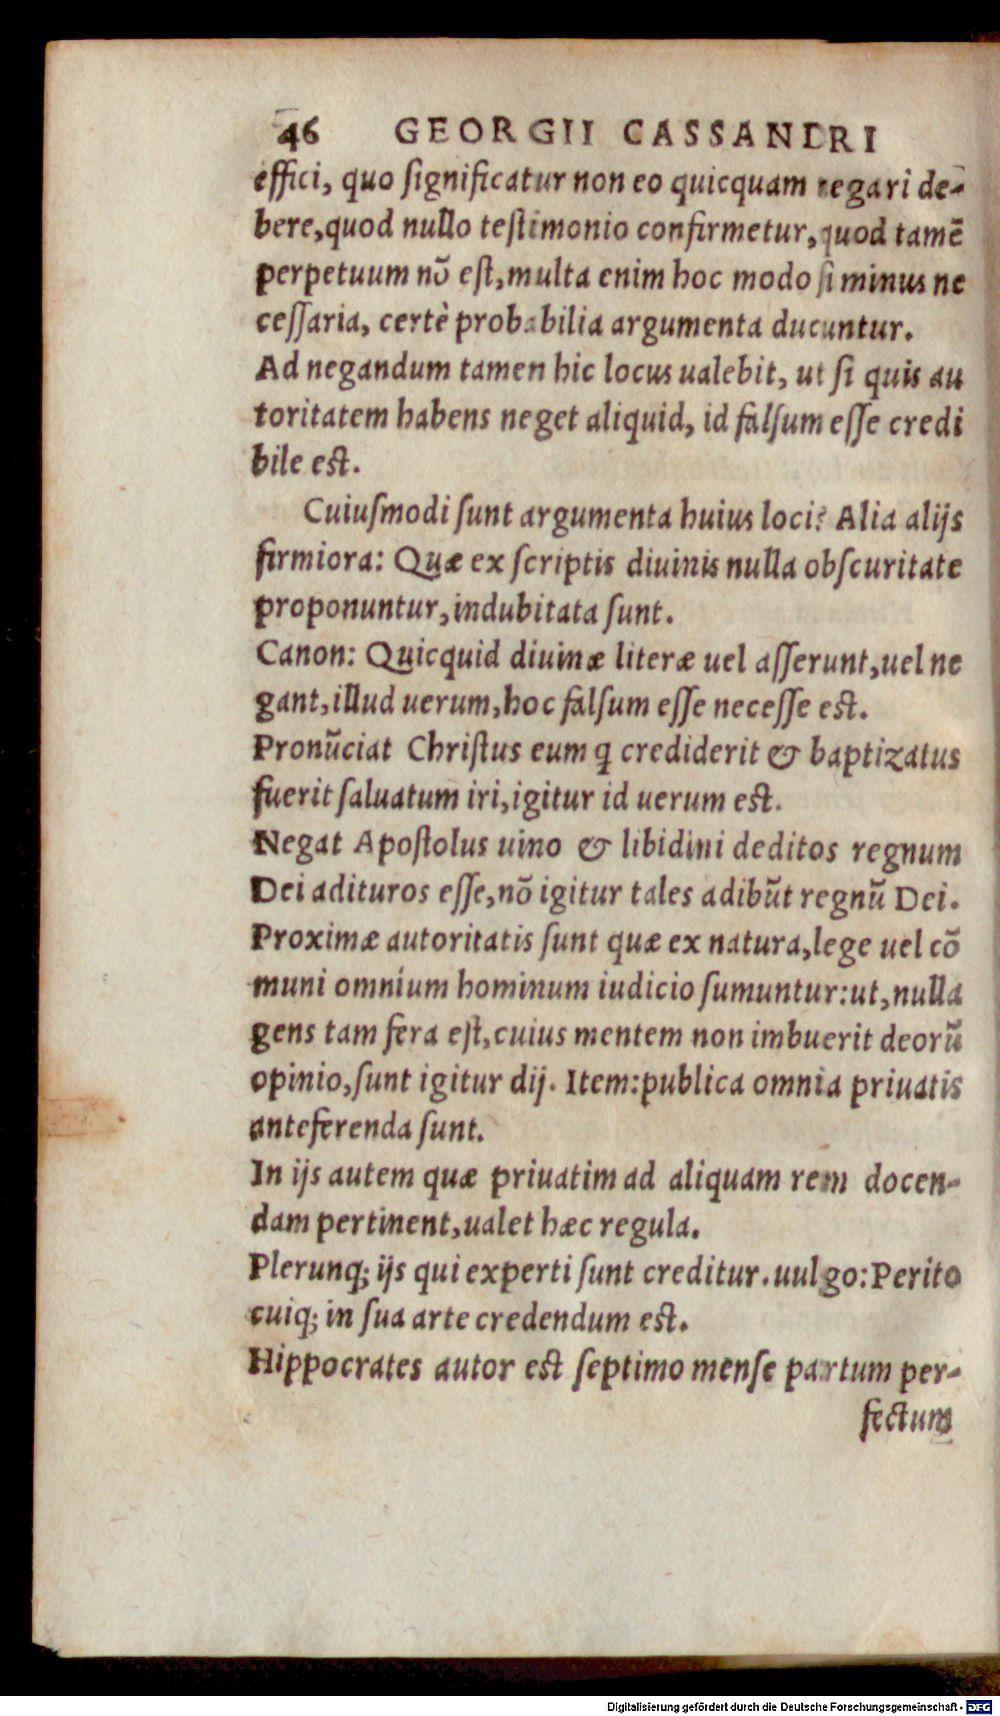 46 GEORGII CASSANDRI
effici, quo ſignificatur non eo quicquam negari de-
bere, quod nullo teſtimonio confirmetur, quod tamē
perpetuum nō eſt, multa enim hoc modo ſi minus ne
ceſſaria, certè probabilia argumenta ducuntur.
Ad negandum tamen hic locus ualebit, ut ſi quis au
toritatem habens neget aliquid, id falſum eſſe credi
bile eſt.
Cuiuſmodi ſunt argumenta huius loci? Alia alijs
firmiora: Quæ ex ſcriptis diuinis nulla obſcuritate
proponuntur, indubitata ſunt.
Canon: Quicquid diuinæ literæ uel aſſerunt, uel ne
gant, illud uerum, hoc falſum eſſe neceſſe eſt.
Pronūciat Chriſtus eum ꝗ crediderit & baptizatus
fuerit ſaluatum iri, igitur id uerum eſt.
Negat Apoſtolus uino & libidini deditos regnum
Dei adituros eſſe, nō igitur tales adibūt regnū Dei.
Proximæ autoritatis ſunt quæ ex natura, lege uel cō
muni omnium hominum iudicio ſumuntur: ut, nulla
gens tam fera eſt, cuius mentem non imbuerit deorū
opinio, ſunt igitur dij. Item: publica omnia priuatis
anteferenda ſunt.
In ijs autem quæ priuatim ad aliquam rem docen-
dam pertinent, ualet hæc regula.
Plerunq; ijs qui experti ſunt creditur. uulgo: Perito
cuiq; in ſua arte credendum eſt.
Hippocrates autor eſt ſeptimo menſe partum per-
fectum
Digitalisierung gefördert durch die Deutsche Forschungsgemeinschaft - DFG